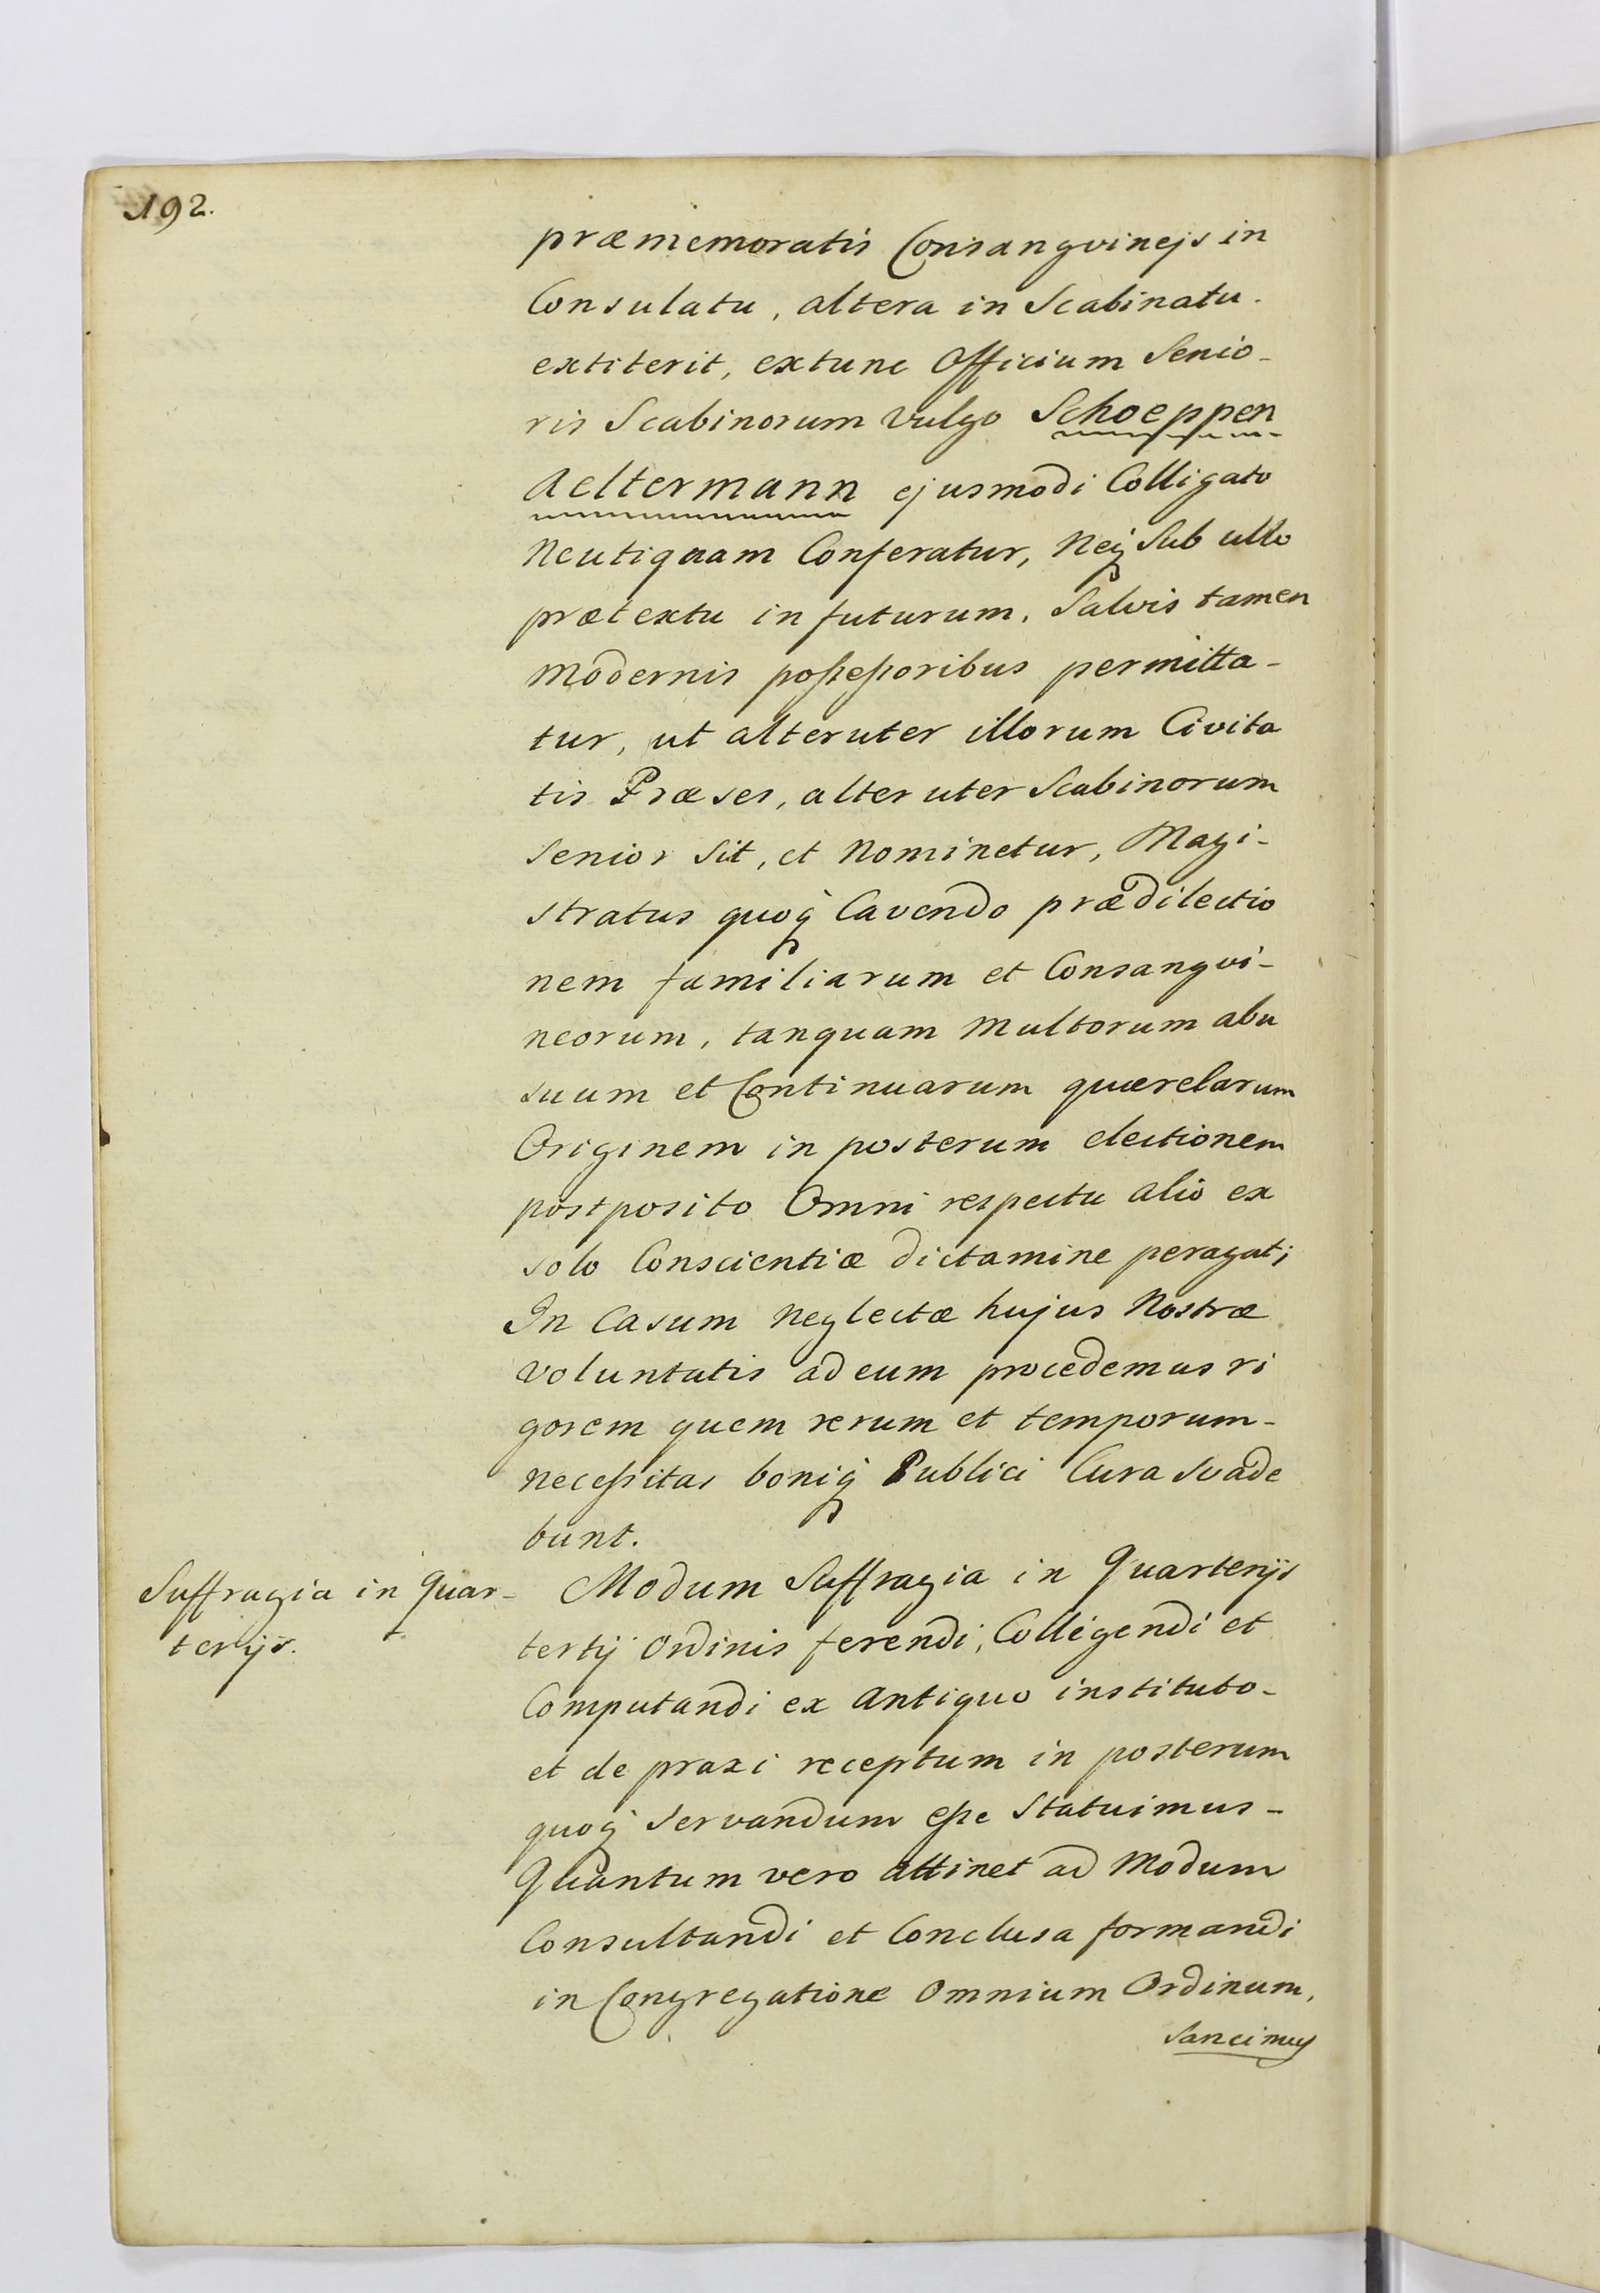 192.
præmemoratis Consangvinejs in
Consulatu, altera in Scabinatu.
extiterit, extunc Officium Senio-
ris Scabinorum vulgo Schoeppen
Aeltermann ejusmodi Colligato
Neutiquam Conferatur, Neq̀ Sub ullo
prætextu in futurum, Salvis tamen
Modernis poſseſsoribus permitta-
tur, ut alteruter illorum Civita
tis Præses, alteruter Scabinorum
Senior Sit, et Nominetur, Magi-
stratus quoq̀ Cavendo prædilectio
nem familiarum et Consangvi-
neorum, tanquam Multorum abu
suum et Continuarum quærelarum
Originem in posterum electionem
postposito Omni respectu alio ex
solo Conscientiæ dictamine peragat;
In Casum Neglectæ hujus Nostræ
voluntatis ad eum procedemus ri
gorem quem rerum et temporum-
Neceſsitas boniq̀ Publici Cura Svade
bunt.
Suffragia in Quar-
terijs.
Modum Suffragia in Quarterijs
tertij Ordinis ferendi, Colligendi et
Computandi ex Antiquo instituto-
et de praxi receptum in posterum
quoq̀ Servandum eſse Statuimus-
Quantum vero attinet ad Modum
Consultandi et Conclusa formandi
in Congregatione Omnium Ordinum,
Sancimus